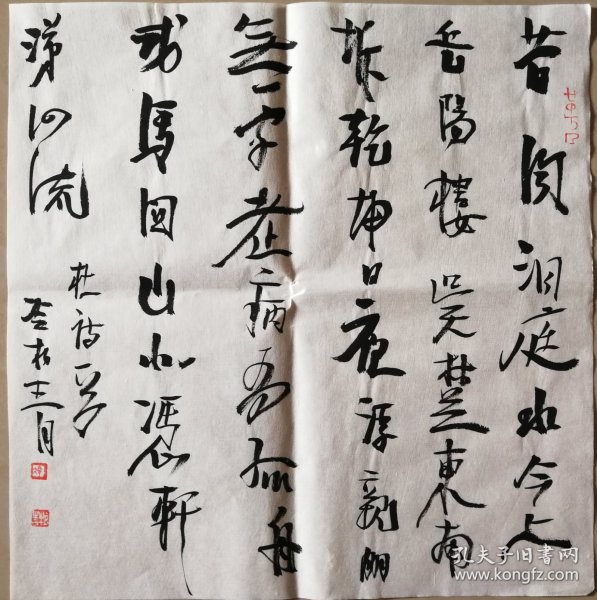 昔闻洞庭水今上
岳陽樓吴楚東南
坼乾坤日夜浮親朋
無一字老病有孤舟
戎馬関山北憑軒
涕泗流
杜诗一首
十二月
孔夫子旧书网
www.kongfz.com